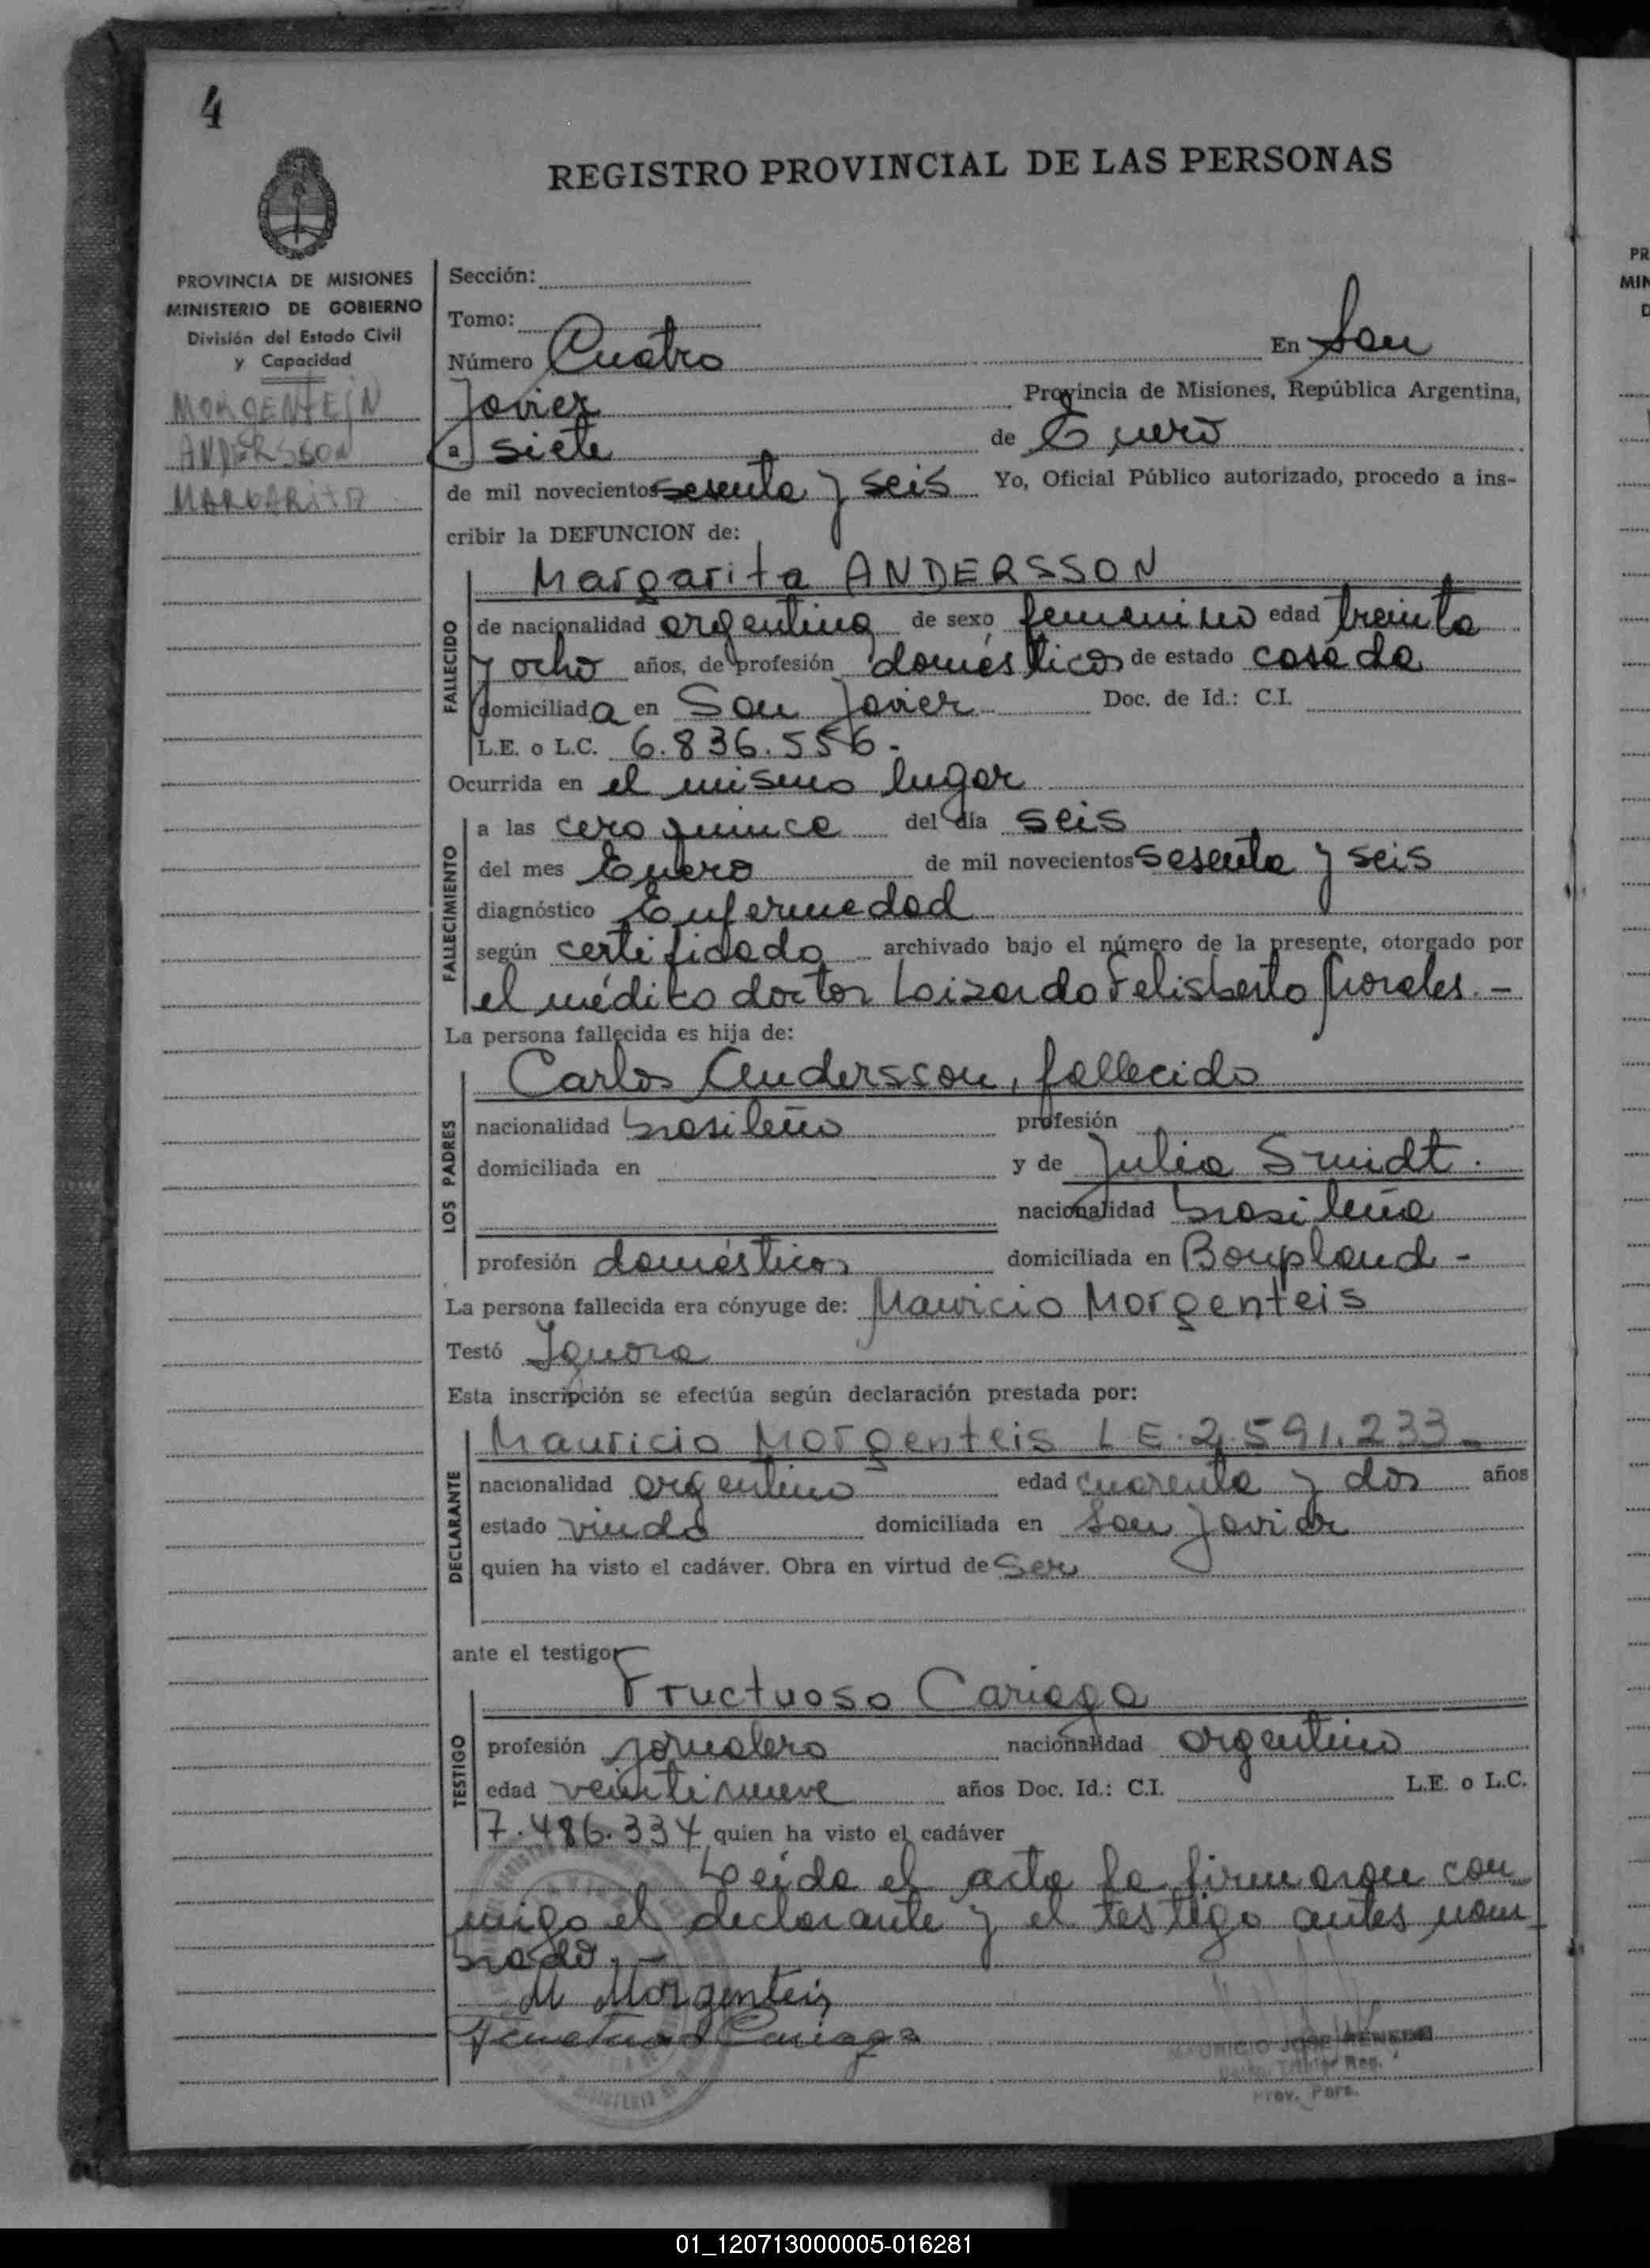 4
REGISTRO PROVINCIAL DE LAS PERSONAS
PROVINCIA DE MISIONES
MINISTERIO DE GOBIERNO
División del Estado Civil
y Capacidad
MORGENTEIN
ANDERSSON
MARGARITA
Sección:
Tomo:
Número Cuatro En San
Javier Provincia de Misiones, República Argentina,
a siete de Enero
de mil novecientos sesenta y seis Yo, Oficial Público autorizado, procedo a ins-
cribir la DEFUNCION de:
FALLECIDO
Margarita ANDERSSON
de nacionalidad argentina de sexo femenino edad treinta
y ocho años, de profesión domésticos de estado casada
domiciliada en San Javier Doc. de Id.: C.I.
L.E. o L.C. 6.836.556.-
Ocurrida en el mismo lugar
FALLECIMIENTO
a las cero quince del día seis
del mes Enero de mil novecientos sesenta y seis
diagnóstico Enfermedad
según certificado archivado bajo el número de la presente, otorgado por
el médico doctor Loizardo Felisberto Morales.-
La persona fallecida es hija de:
LOS PADRES
Carlos Andersson, fallecido
nacionalidad brasileño profesión
domiciliada en y de Julia Smidt.
nacionalidad brasileña
profesión domésticos domiciliada en Bonpland -
La persona fallecida era cónyuge de: Mauricio Morgenteis
Testó Ignora
Esta inscripción se efectúa según declaración prestada por:
DECLARANTE
Mauricio Morgenteis L E. 2.591.233-
nacionalidad argentino edad cuarenta y dos años
estado viudo domiciliada en San Javier
quien ha visto el cadáver. Obra en virtud de Ser
ante el testigo
TESTIGO
Fructuoso Cariaga
profesión jornalero nacionalidad argentino
edad veintinueve años Doc. Id.: C.I. L.E. o L.C.
7.486.334 quien ha visto el cadáver
Leida el acta la firmaron con
migo el declarante y el testigo antes nom
brado.-
M Morgenteis
Fructuoso Cariaga
MAURICIO JOSE
Prov. Pers.
01_120713000005-016281